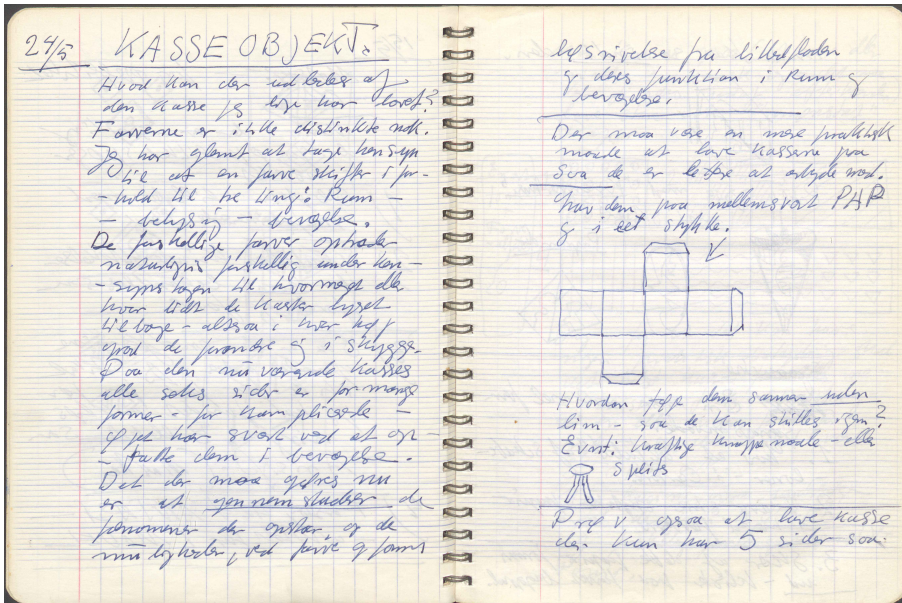 24/5 KASSE OBJEKT.
Hvad kan der udledes af
den kasse jeg lige har lavet?
Farverne er ikke distinkte nok.
Jeg har glemt at tage hensyn
til at en farve skifter i for-
-hold til tre ting: Rum -
- belysning - bevægelse.
De forskellige farver optræder
naturligvis forskellig under hen-
-syns tagen til hvormeget eller
hvor lidt de kaster lyset
tilbage - altsaa i hvor høj
grad de forandrer sig i skygge.
Paa den nuværende kasses
alle seks sider er for mange
former - for komplicerede -
øjet har svært ved at op-
-fatte dem i bevægelse.
Det der maa gøres nu
er at gennemstudere de
fænomener der opstår og de
muligheder, ved farve og forms
løsrivelse fra billedfladen
og deres funktion i Rum og
bevægelse.
Der maa være en mere praktisk
maade at lave kasserne paa
saa de er lettere at arbejde med.
Lav dem paa mellemsvært PAP
og i eet stykke.
Hvordan føje dem sammen uden
lim - saa de kan skilles igen?
Evnt: Kraftige knappenaale - eller
splits
Prøv ogsaa at lave kasse
der kun har 5 sider saa.